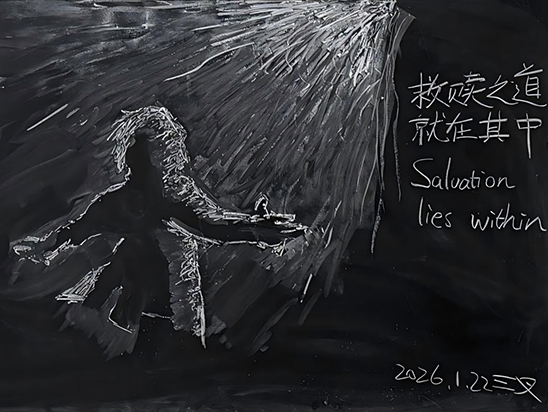 救赎之道
就在其中
Salvation
lies within
2026.1.22三又